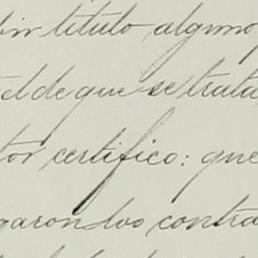 sin título alguno
el de que se trata
tor certifico: que
garon los contra